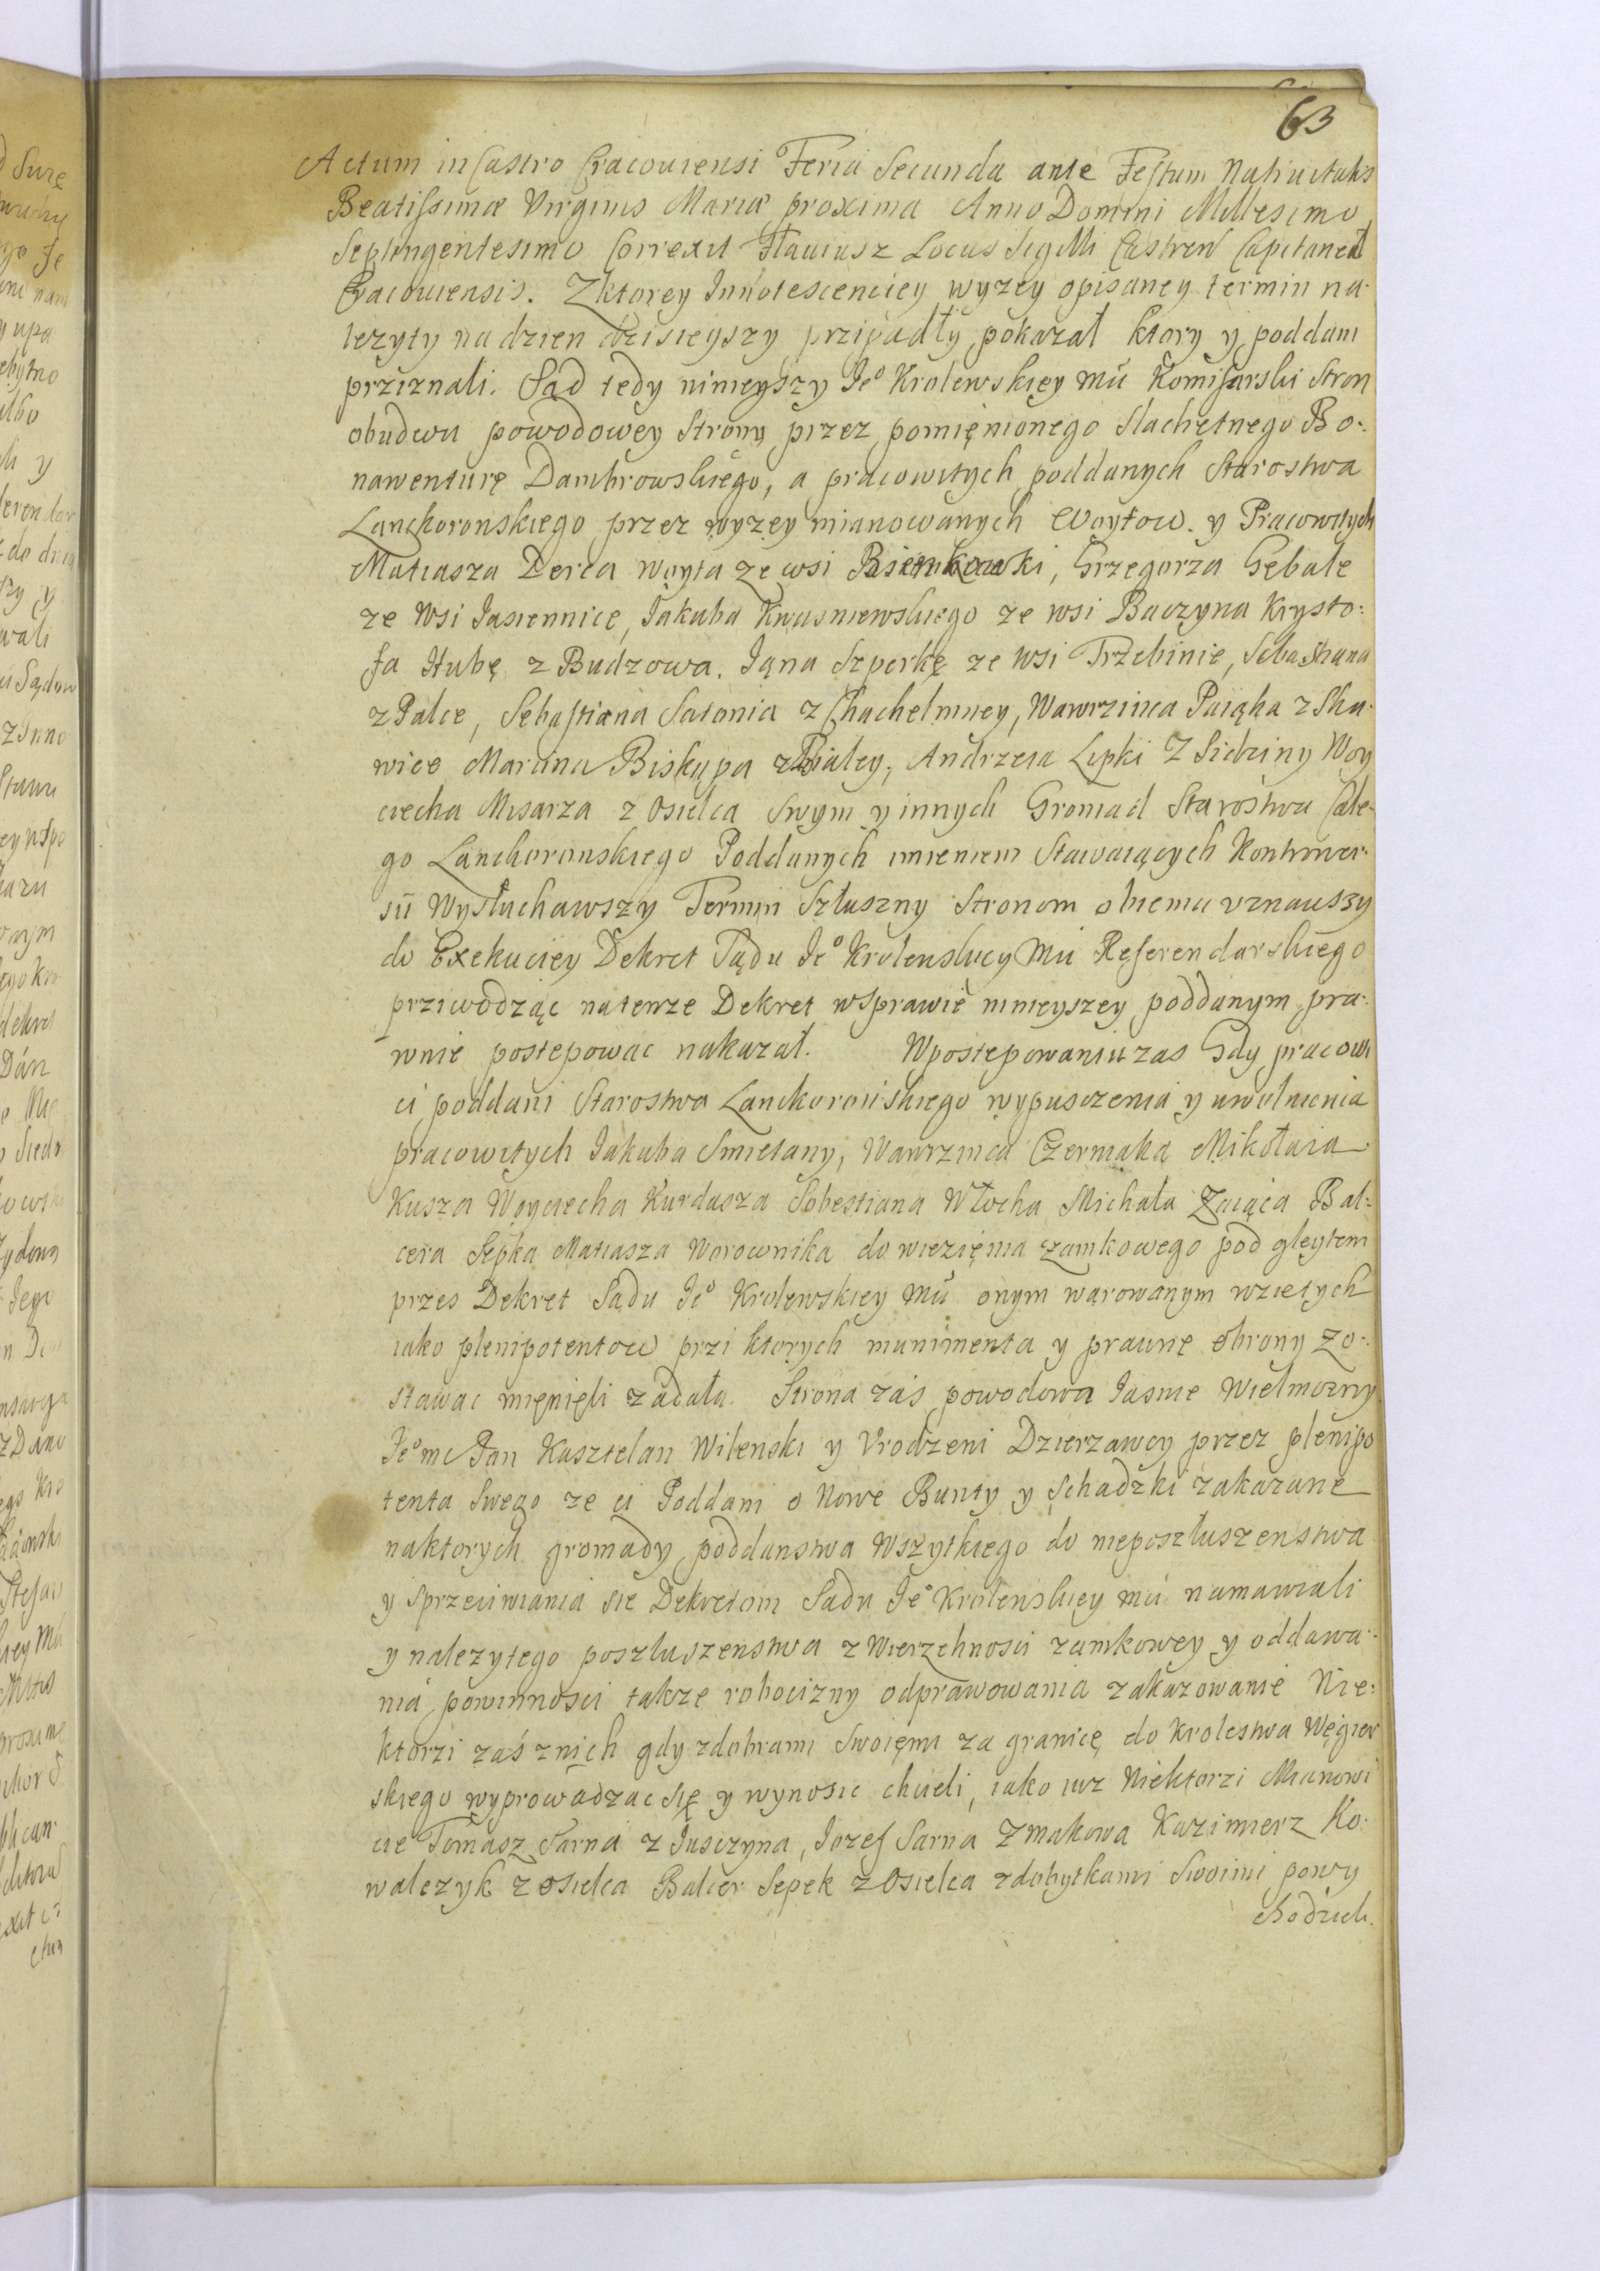 63
Actum in Castro Cracoviensi Feria Secunda ante Festum Nativitatis
Beatissimæ Virginis Mariæ proxima Anno Domini Millesimo
Septingentesimo Correxit Hawiusz Locus Sigilli Castren Capitaneal
Cracoviensis. Zktorey Innotescenciey wyzey opisaney termin na-
lezyty na dzien dzisieyszy przipadły pokazał ktory y poddani
przıznali. Sąd tedy ninieyszy Jeo Krolewskiey Mci Komisarski Stron
obudwu powodowey Strony przez pomięnionego Slachetnego Bo-
nawenturę Dambrowskiego, a pracowitych poddanych Starostwa
Lanckoronskiego przez wyzey mianowanych Woytow. y Pracowitych
Matiasza Derca woyta ze wsi Bienkowki, Grzegorza Gębale
ze wsi Jasiennice, Jakuba Kwasniewskiego ze wsi Baczyna Krysto:
fa Hubę z Budzowa. Jąna Szperkę ze wsi Trzebinie, Sebastiana
z Palce, Sebastiana Satonia z Chachelmney, Wawrzinca Paiąka z Ska-
wice Marcina Biskupa z Bialey, Andrzeia Lipki z Sidziny Woy
ciecha Misarza z Osielca Swym y innych Gromad Starostwa Całe-
go Lanckoronskiego Poddanych imieniem Stawaiących Kontrower-
sii Wysłuchawszy Termin Szłuszny Stronom obiema uznawszy
do Exekuciey Dekret Sądu Jeo Krolewskiey Mci Referendarskiego
przıwodząc na tenze Dekret wsprawie ninieyszey poddanym pra-
wnie postepowac nakazał. Wpostepowaniu zas Gdy pracowi
ci poddani Starostwa Lanckoronskiego wypusczenia y uwolnienia
pracowitych Jakuba Smietany, Wawrzinca Czermaka Mikołaia
Kusza Woyciecha Kurdasza Sobestiana Włocha Michała Zaiąca Bal:
cera Sępka Matiasza Worownika do wiezięnia zamkowego pod gleytem
przes Dekret Sądu Jeo Krolewskiey Mci onym warowanym wzietych
iako plenipotentow przi ktorych munimenta y prawne obrony zo-
stawac mięnięli ządała. Strona zaś powodowa Jasnie Wielmozny
Jeo mc Pan Kasztelan Wilenski y Vrodzeni Dzierzawcy przez plenipo
tenta Swego ze ci Poddani o Nowe Bunty y Schadzki zakazane
naktorych gromady poddanstwa Wszytkiego do nieposzłuszenstwa
y sprzeciwiania sie Dekretom Sadu Jeo Krolewskiey Mci namawiali
y nalezytego poszluszenstwa z Wierzchnosci zamkowey y oddawa-
nia powinnosci takze robocizny odprawowania zakazowanie Nie:
ktorzi zaś znich gdy zdobrami Swoięmi za granicę do Krolestwa Węgier
skiego wyprowadzac się y wynosic chcieli, iako iuz Niektorzi Mianowi
cie Tomasz Sarna z Jusczyna, Jozef Sarna z Makowa Kazimierz Ko-
walczyk z Osielca Balcer Sepek z Osielca zdobytkami Swoimi powy
chodzieli.